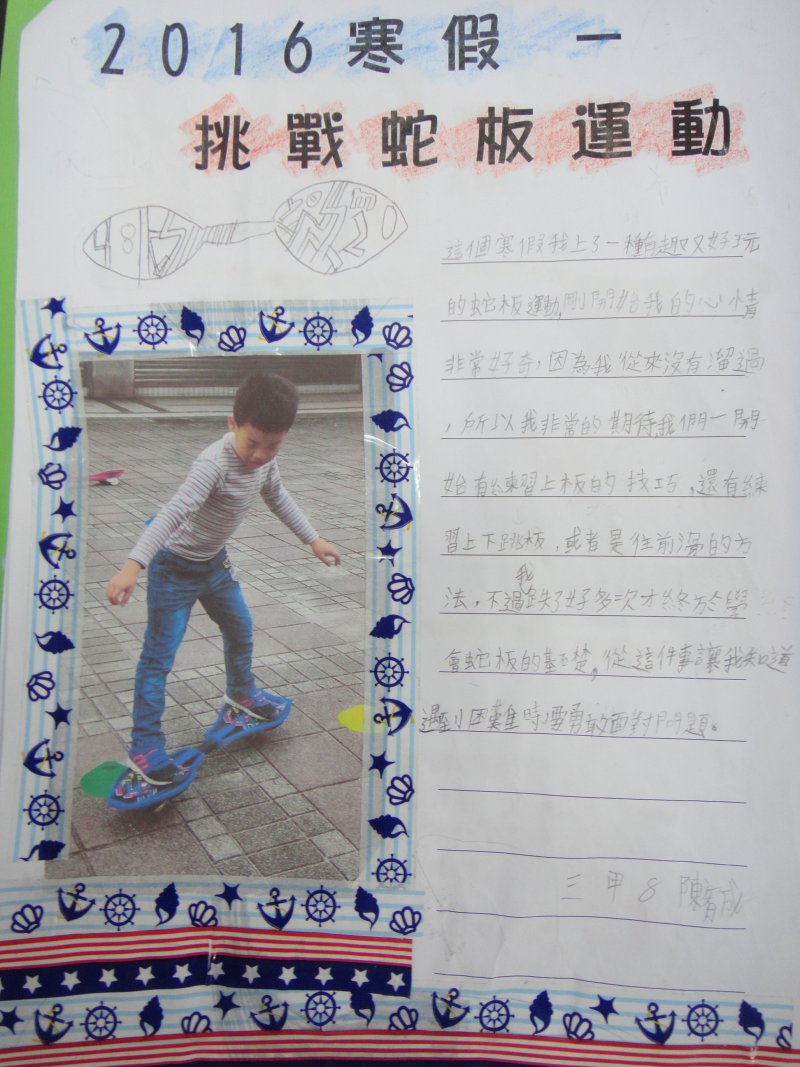 2016寒假一
挑戰蛇板運動
這個寒假我上了一種有趣又好玩
的蛇板運動,剛開始我的心情
非常好奇,因為我從來沒有溜過
,所以我非常的期待,我們一開
始有練習上板的技巧,還有練
習上下跳板,或者是往前滑的方
法,不過我跌了好多次才終於學
會蛇板的基礎,從這件事讓我知道
遇到困難時要勇敢面對問題。
三甲8 陳